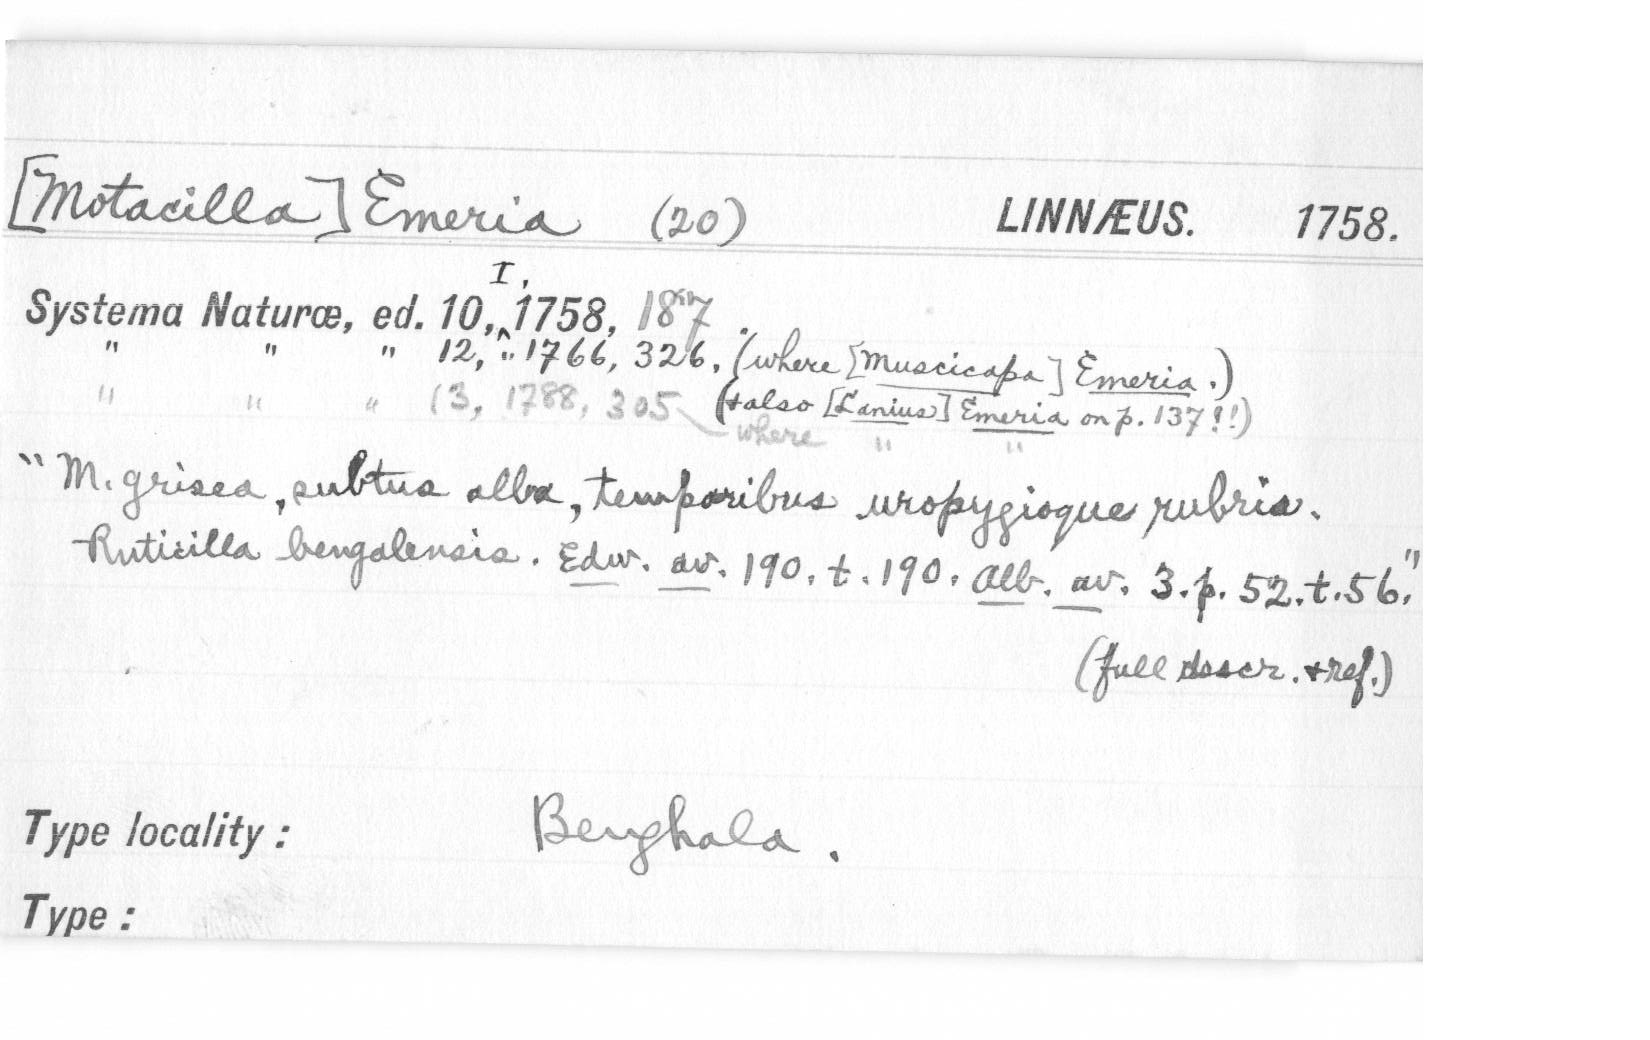 [Motacilla] Emeria (20) LINNÆUS. 1758.
I,
Systema Naturæ, ed. 10,^ 1758, 187.
" " " 12, " 1766, 326. (where [Muscicapa] Emeria.)
" " " 13, 1788, 305 (+also [Lanius] Emeria on p. 137!!)
where " "
"M. grisea, subtus alba, temporibus uropygioque rubris.
Ruticilla bengalensis. Edw. av. 190. t. 190. Alb. av. 3. p. 52. t. 56."
(full descr. + ref.)
Type locality: Benghala.
Type: